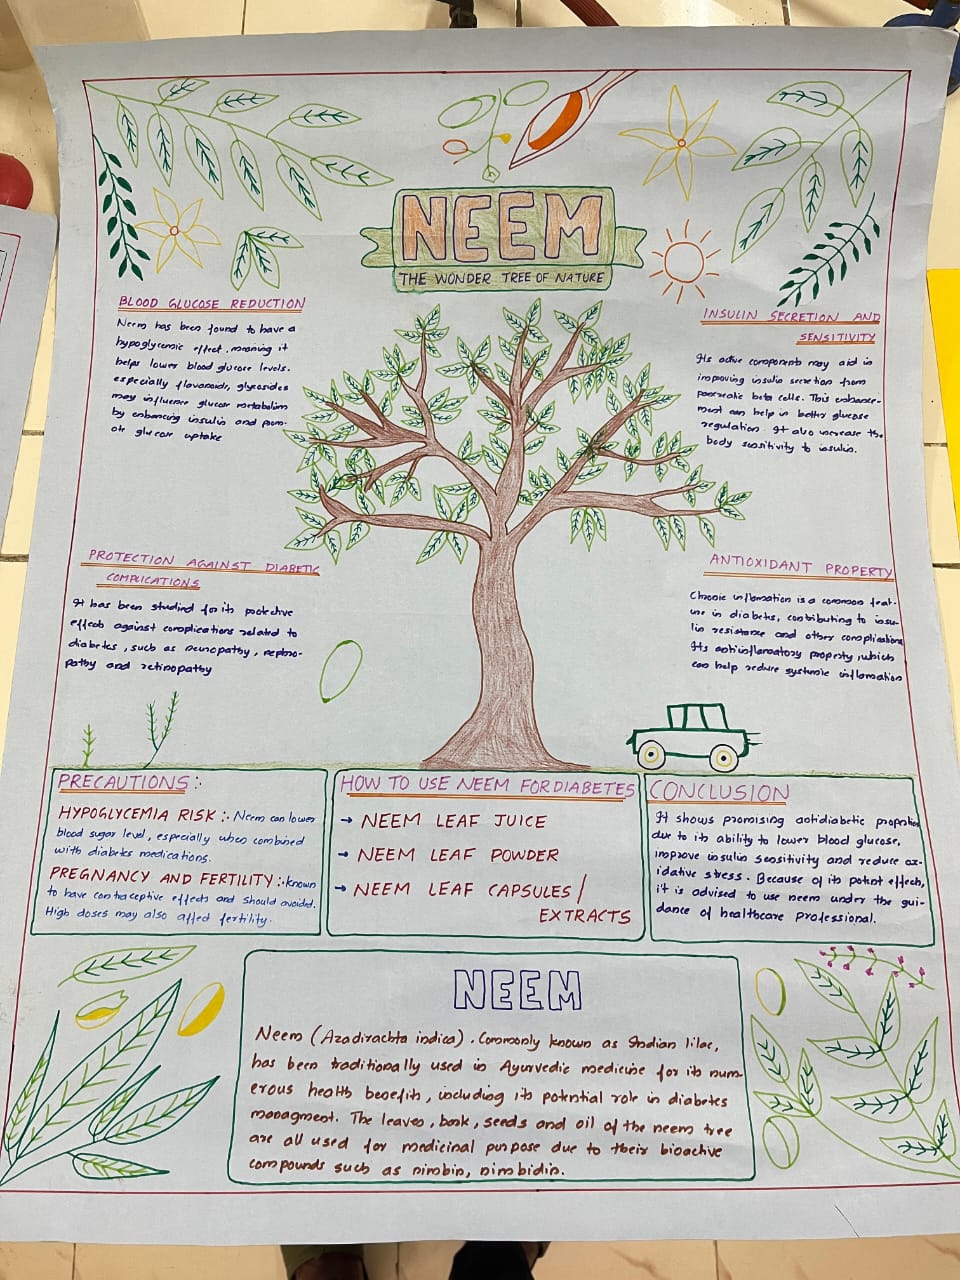 NEEM
THE WONDER TREE OF NATURE
BLOOD GLUCOSE REDUCTION
Neem has been found to have a
hypoglycemic effect, meaning it
helps lower blood glucose levels.
especially flavonoids, glycosides
may influence glucose metabolism
by enhancing insulin and prom-
ote glucose uptake
INSULIN SECRETION AND
SENSITIVITY
Its active components may aid in
improving insulin secretion from
pancreatic beta cells. This enhance-
ment can help in better glucose
regulation. It also increase the
body sensitivity to insulin.
PROTECTION AGAINST DIABETIC
COMPLICATIONS
It has been studied for its protective
effects against complications related to
diabetes, such as neuropathy, nephro-
pathy and retinopathy
ANTIOXIDANT PROPERTY
Chronic inflamation is a common feat-
ure in diabetes, contributing to insu-
lin resistance and other complications
Its antiinflamatory property, which
can help reduce systemic inflamation
PRECAUTIONS :-
HYPOGLYCEMIA RISK :- Neem can lower
blood sugar level, especially when combined
with diabetes medications.
PREGNANCY AND FERTILITY :- known
to have contraceptive effects and should avoided.
High doses may also affect fertility.
HOW TO USE NEEM FOR DIABETES
→ NEEM LEAF JUICE
→ NEEM LEAF POWDER
→ NEEM LEAF CAPSULES /
EXTRACTS
CONCLUSION
It shows promising antidiabetic properties
due to its ability to lower blood glucose,
improve insulin sensitivity and reduce ox-
idative stress. Because of its potent effects,
it is advised to use neem under the gui-
dance of healthcare professional.
NEEM
Neem (Azadirachta indica). Commonly known as Indian lilac,
has been traditionally used in Ayurvedic medicine for its num-
erous health benefits, including its potential role in diabetes
managment. The leaves, bark, seeds and oil of the neem tree
are all used for medicinal purpose due to their bioactive
compounds such as nimbin, nimbidin.